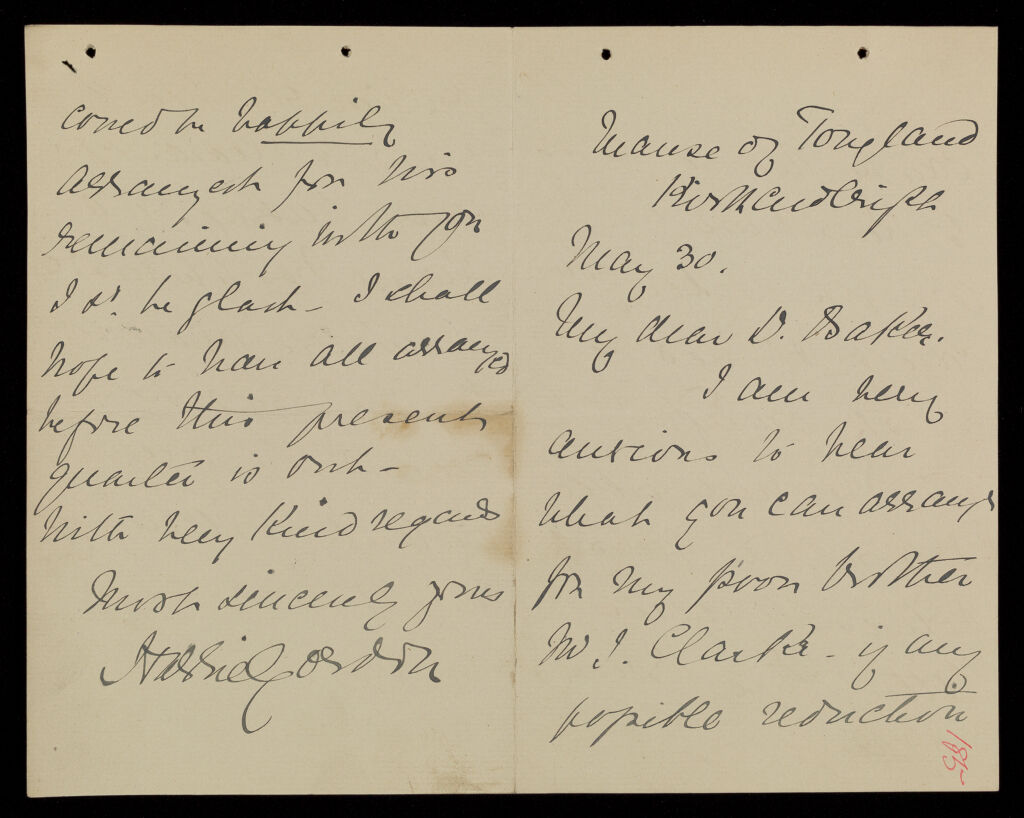 Manse of Tongland
Kirkcudbright
May 30.
My dear D. Baker.
I am very
anxious to hear
what you can arrange
for my poor brother
Mr J. Clarke - if any
possible reduction
185
could be happily
arranged for his
remaining with you
I sd. be glad - I shall
hope to have all arranged
before this present
quarter is out -
With very kind regards
Most sincerely yours
Gordon